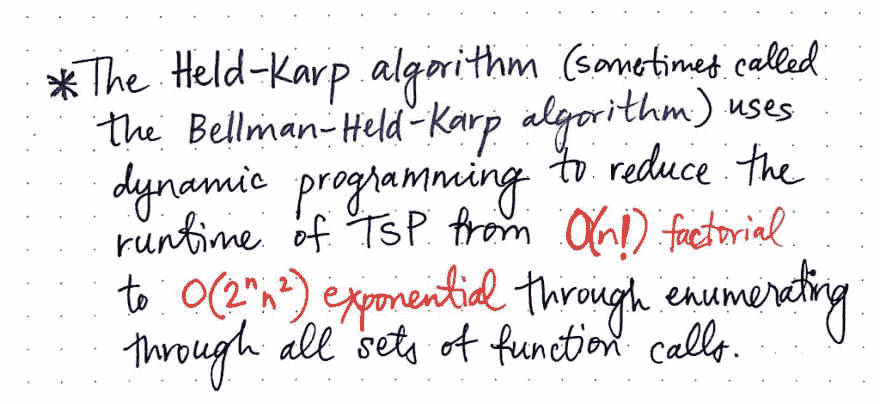 *The Held-Karp algorithm (sometimes called
the Bellman-Held-Karp algorithm) uses
dynamic programming to reduce the
runtime of TSP from O(n!) factorial
to O(2ⁿn²) exponential through enumerating
through all sets of function calls.